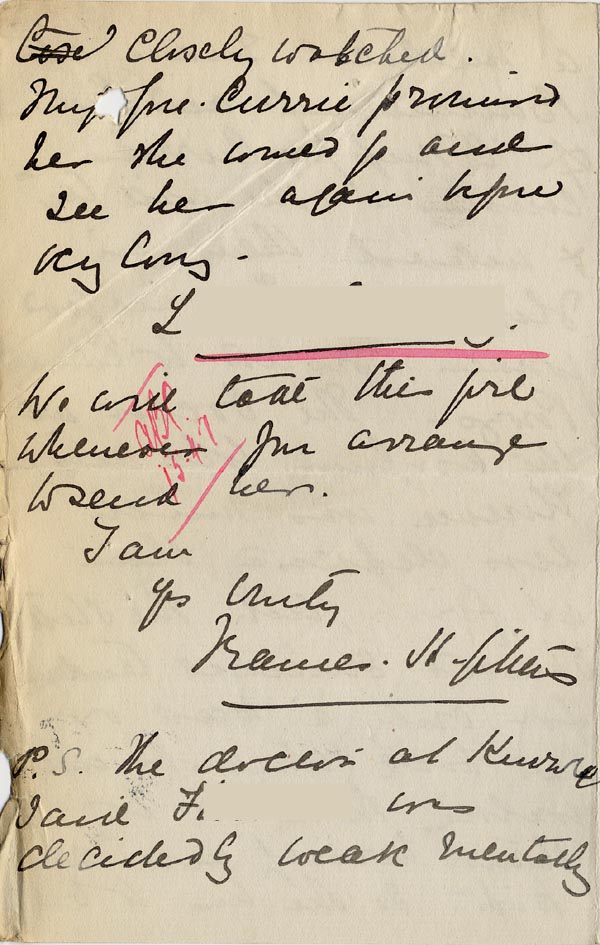 closely watched.
Currie promised
her she would go and
see her again before
very long -
L
We will take this girl
whenever you arrange
to send her.
15.4.7
I am
Yrs truly
Frances.
P.S. The doctor at
said F. was
decidedly weak mentally